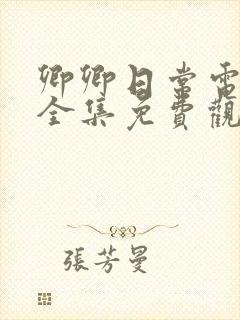 卿卿日常電
全集免費觀
張芳曼